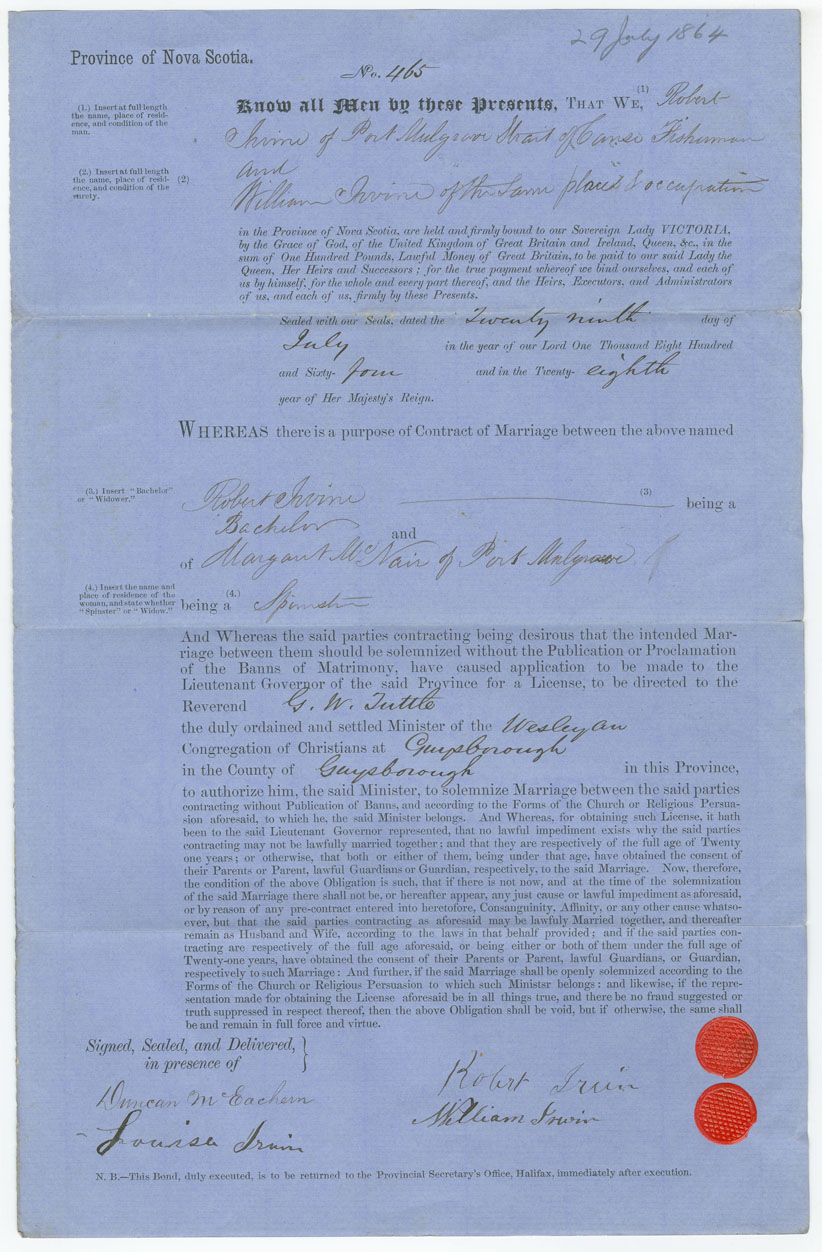 29 July 1864
Province of Nova Scotia.
No. 465
(1.) Insert at full length
the name, place of resid-
ence, and condition of the
man.
Know all Men by these Presents, THAT WE, (1) Robert
Irvine of Port Mulgrave Strait of Canso Fisherman
and
(2.) Insert at full length
the name, place of resid-
ence, and condition of the
surety.
(2)
William Irvine of the same place & occupation
in the Province of Nova Scotia, are held and firmly bound to our Sovereign Lady VICTORIA,
by the Grace of God, of the United Kingdom of Great Britain and Ireland, Queen, &c., in the
sum of One Hundred Pounds, Lawful Money of Great Britain, to be paid to our said Lady the
Queen, Her Heirs and Successors; for the true payment whereof we bind ourselves, and each of
us by himself, for the whole and every part thereof, and the Heirs, Executors, and Administrators
of us, and each of us, firmly by these Presents.
Sealed with our Seals, dated the Twenty ninth day of
July in the year of our Lord One Thousand Eight Hundred
and Sixty- four and in the Twenty- eighth
year of Her Majesty's Reign.
WHEREAS there is a purpose of Contract of Marriage between the above named
(3.) Insert "Bachelor"
or "Widower."
Robert Irvine (3) being a
Bachelor and
of Margaret McNair of Port Mulgrave
(4.) Insert the name and
place of residence of the
woman, and state whether
"Spinster" or "Widow."
being a (4.) Spinster
And Whereas the said parties contracting being desirous that the intended Mar-
riage between them should be solemnized without the Publication or Proclamation
of the Banns of Matrimony, have caused application to be made to the
Lieutenant Governor of the said Province for a License, to be directed to the
Reverend G. W. Tuttle
the duly ordained and settled Minister of the Wesleyan
Congregation of Christians at Guysborough
in the County of Guysborough in this Province,
to authorize him, the said Minister, to solemnize Marriage between the said parties
contracting without Publication of Banns, and according to the Forms of the Church or Religious Persua-
sion aforesaid, to which he, the said Minister belongs. And Whereas, for obtaining such License, it hath
been to the said Lieutenant Governor represented, that no lawful impediment exists why the said parties
contracting may not be lawfully married together; and that they are respectively of the full age of Twenty
one years; or otherwise, that both or either of them, being under that age, have obtained the consent of
their Parents or Parent, lawful Guardians or Guardian, respectively, to the said Marriage. Now, therefore,
the condition of the above Obligation is such, that if there is not now, and at the time of the solemnization
of the said Marriage there shall not be, or hereafter appear, any just cause or lawful impediment as aforesaid,
or by reason of any pre-contract entered into heretofore, Consanguinity, Affinity, or any other cause whatso-
ever, but that the said parties contracting as aforesaid may be lawfuly Married together, and thereafter
remain as Husband and Wife, according to the laws in that behalf provided; and if the said parties con-
tracting are respectively of the full age aforesaid, or being either or both of them under the full age of
Twenty-one years, have obtained the consent of their Parents or Parent, lawful Guardians, or Guardian,
respectively to such Marriage: And further, if the said Marriage shall be openly solemnized according to the
Forms of the Church or Religious Persuasion to which such Minister belongs: and likewise, if the repre-
sentation made for obtaining the License aforesaid be in all things true, and there be no fraud suggested or
truth suppressed in respect thereof, then the above Obligation shall be void, but if otherwise, the same shall
be and remain in full force and virtue.
Signed, Sealed, and Delivered,
in presence of
Duncan McEachern
Louisa Irvin
Robert Irvin
William Irwin
N. B.—This Bond, duly executed, is to be returned to the Provincial Secretary's Office, Halifax, immediately after execution.